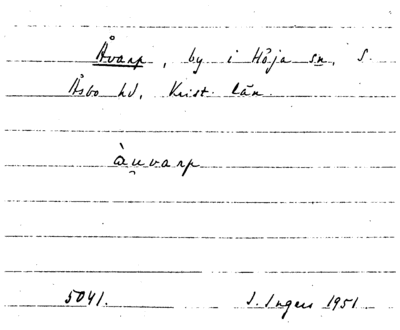 Åvarp, by i Höja sn, S.
Åsbo hd, Krist. län.
àu̯varp
5041. I. Ingers 1951.